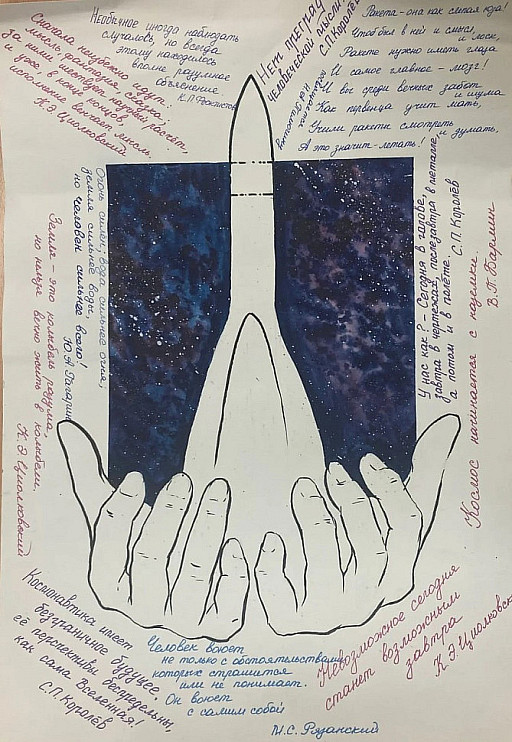 Сначала неизбежно идут:
мысль, фантазия, сказка;
за ними шествует научный расчёт,
и уже в конце концов
исполнение венчает мысль.
К.Э.Циолковский
Необычное иногда наблюдать
случалось, но всегда
этому находилось
вполне разумное
объяснение
К.П.Феоктистов
Нет преград
человеческой мысли.
С.П.Королёв
Ракета-она как слитая юла!
Чтоб был в ней и смысл, и лоск,
Ракете нужно иметь глаза
И самое главное - мозг!
И вы среди вечных забот и шума
Как первенца учит мать,
Учили ракеты смотреть и думать,
А это значит-летать!
Огонь силен; вода сильнее огня;
земля сильнее воды,
но человек сильнее всего!
Ю.А.Гагарин
Земля - это колыбель разума,
но нельзя вечно жить в колыбели.
К.Э.Циолковский
У нас как? - Сегодня в голове,
завтра в чертежах, послезавтра в металле,
а потом и в полёте.
С.П.Королёв
Космос начинается с наземки
В.П.Бармин
Космонавтика имеет
безграничное будущее,
её перспективы беспредельны,
как сама Вселенная!
С.П.Королёв
Человек воюет
не только с обстоятельствами,
которых страшится
или не понимает.
Он воюет
с самим собой
М.С. Рязанский
Невозможное сегодня
станет возможным
завтра
К.Э.Циолковск